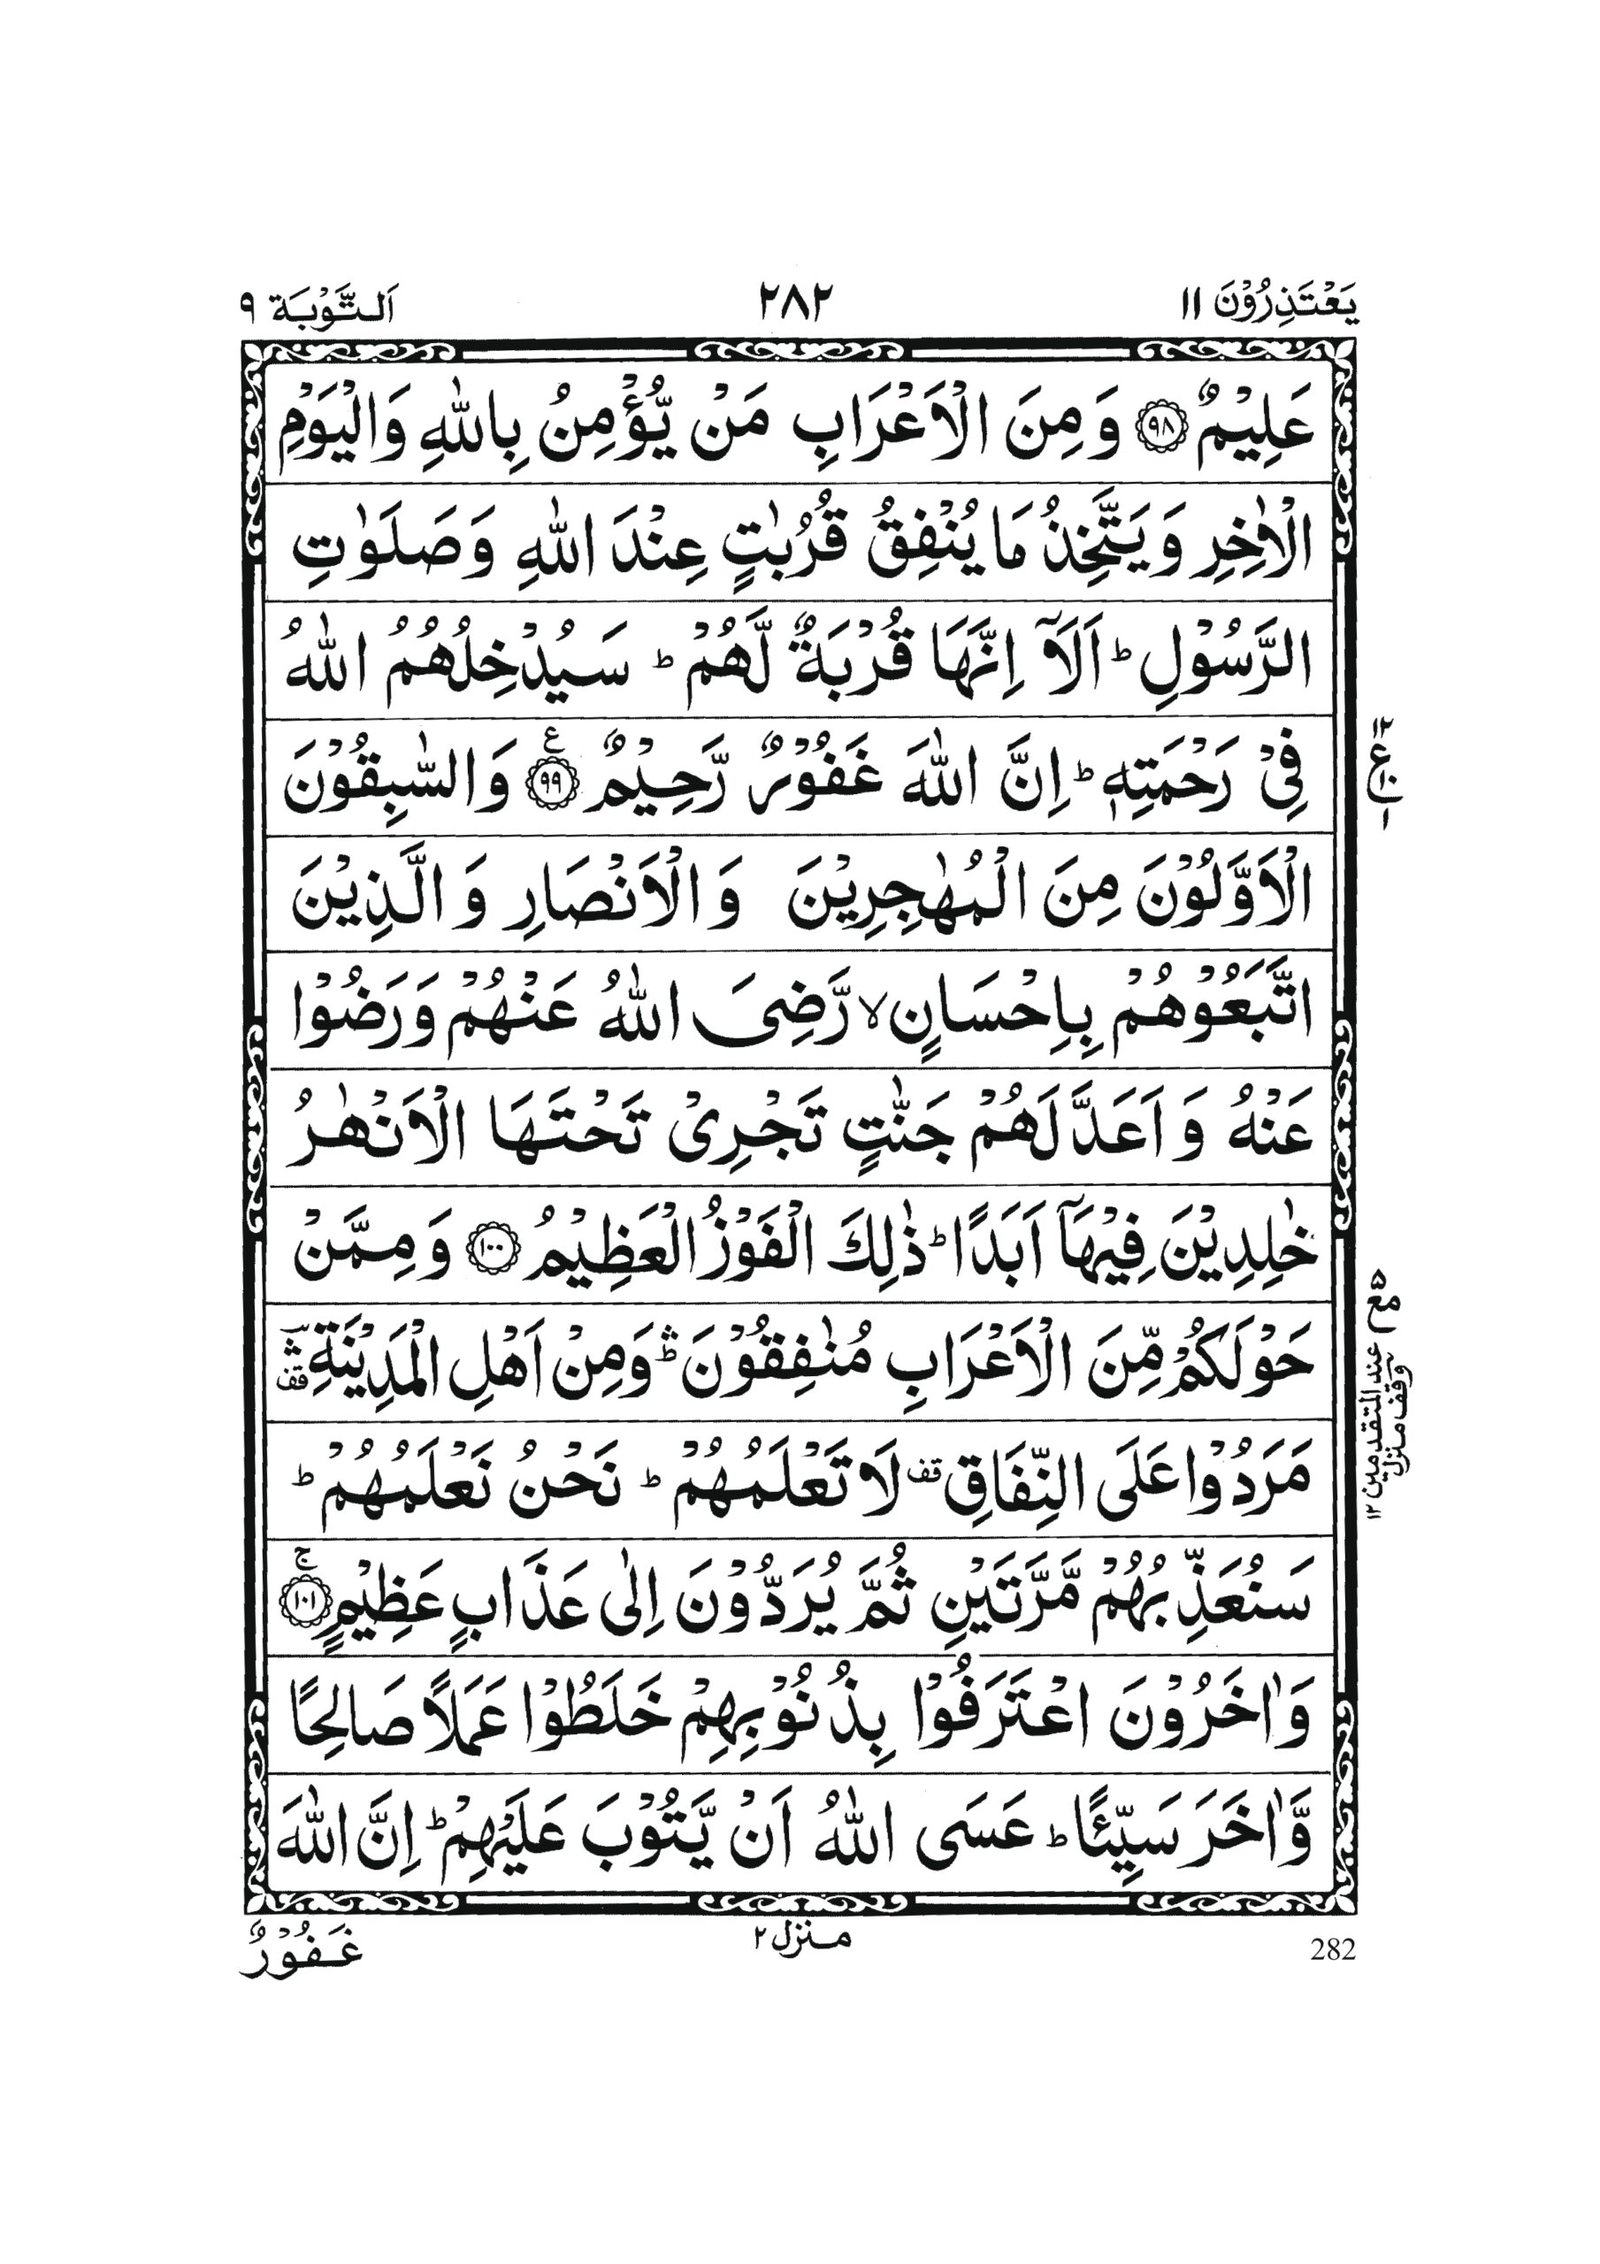 يَعْتَذِرُوْنَ ١١ ٢٨٢ اَلتَّوْبَة ٩
عَلِيْمٌ ﴿٩٨﴾ وَ مِنَ الْاَعْرَابِ مَنْ يُّؤْمِنُ بِاللّٰهِ وَالْيَوْمِ
الْاٰخِرِ وَ يَتَّخِذُ مَا يُنْفِقُ قُرُبٰتٍ عِنْدَ اللّٰهِ وَ صَلَوٰتِ
الرَّسُوْلِ ؕ اَلَاۤ اِنَّهَا قُرْبَةٌ لَّهُمْ ؕ سَيُدْخِلُهُمُ اللّٰهُ
فِيْ رَحْمَتِهٖ ؕ اِنَّ اللّٰهَ غَفُوْرٌ رَّحِيْمٌ ﴿٩٩﴾ ع وَ السّٰبِقُوْنَ
١٢ ع ١
الْاَوَّلُوْنَ مِنَ الْمُهٰجِرِيْنَ وَ الْاَنْصَارِ وَ الَّذِيْنَ
اتَّبَعُوْهُمْ بِاِحْسَانٍ ۙ رَّضِىَ اللّٰهُ عَنْهُمْ وَ رَضُوْا
عَنْهُ وَ اَعَدَّ لَهُمْ جَنّٰتٍ تَجْرِىْ تَحْتَهَا الْاَنْهٰرُ
خٰلِدِيْنَ فِيْهَاۤ اَبَدًا ؕ ذٰلِكَ الْفَوْزُ الْعَظِيْمُ ﴿١٠٠﴾ وَ مِمَّنْ
حَوْلَكُمْ مِّنَ الْاَعْرَابِ مُنٰفِقُوْنَ ۛؕ وَ مِنْ اَهْلِ الْمَدِيْنَةِ ۛ قف
مع ٥
عند المتقدمين ١٢
وقف منزل
مَرَدُوْا عَلَى النِّفَاقِ قف لَا تَعْلَمُهُمْ ؕ نَحْنُ نَعْلَمُهُمْ ؕ
سَنُعَذِّبُهُمْ مَّرَّتَيْنِ ثُمَّ يُرَدُّوْنَ اِلٰى عَذَابٍ عَظِيْمٍ ﴿١٠١﴾ ج
وَ اٰخَرُوْنَ اعْتَرَفُوْا بِذُنُوْبِهِمْ خَلَطُوْا عَمَلًا صَالِحًا
وَّ اٰخَرَ سَيِّئًا ؕ عَسَى اللّٰهُ اَنْ يَّتُوْبَ عَلَيْهِمْ ؕ اِنَّ اللّٰهَ
282 منزل ٢ غَفُوْرٌ